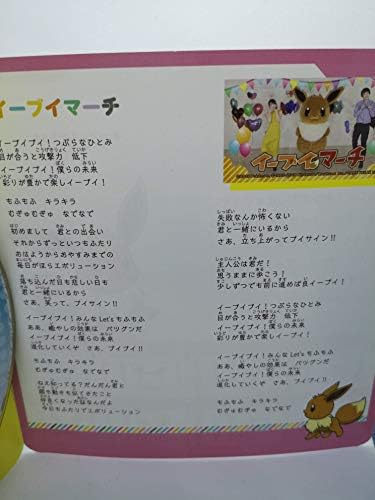 イーブイマーチ
イーブイブイ！つぶらなひとみ
目が合うと攻撃力 低下
イーブイブイ！僕らの未来
彩りが豊かで楽しイーブイ！
もふもふ キラキラ
むぎゅむぎゅ なでなで
初めまして 君との出会い
それからずっといつもふたり
おはようからおやすみまでの
毎日がほらエボリューション
落ち込んだ日も悲しい日も
君と一緒にいるから
さあ、笑って、ブイサイン!!
イーブイブイ！みんな Let's もふもふ
ああ、癒やしの効果は バツグンだ
イーブイブイ！僕らの未来
進化していくぞ さあ、ブイブイ!!
もふもふ キラキラ
むぎゅむぎゅ なでなで
ねえ知ってる？だんだん君と
顔や動きも似てきたこと
仲良くなった証なんだよ
今日もふたりでエボリューション
イーブイマーチ
失敗なんか怖くない
君と一緒にいるから
さあ、立ち上がってブイサイン!!
主人公は君だ！
思うままに歩こう！
少しずつでも前に進めば良イーブイ！
イーブイブイ！つぶらなひとみ
目が合うと攻撃力 低下
イーブイブイ！僕らの未来
彩りが豊かで楽しイーブイ！
イーブイブイ！みんな Let's もふもふ
ああ、癒やしの効果は バツグンだ
イーブイブイ！僕らの未来
進化していくぞ さあ、ブイブイ!!
もふもふ キラキラ
むぎゅむぎゅ なでなで